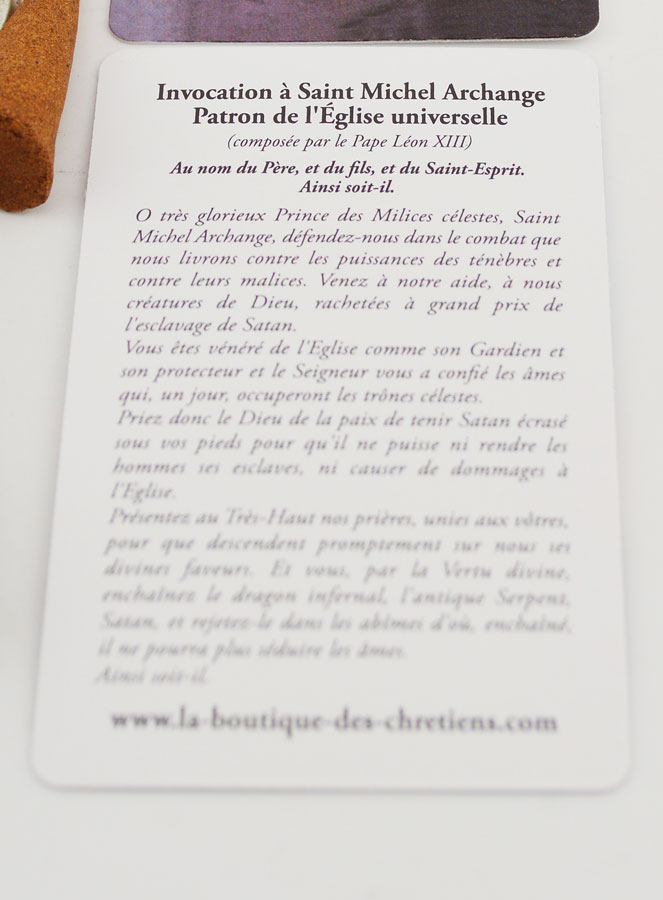 Invocation à Saint Michel Archange
Patron de l'Église universelle
(composée par le Pape Léon XIII)
Au nom du Père, et du fils, et du Saint-Esprit.
Ainsi soit-il.
O très glorieux Prince des Milices célestes, Saint
Michel Archange, défendez-nous dans le combat que
nous livrons contre les puissances des ténèbres et
contre leurs malices. Venez à notre aide, à nous
créatures de Dieu, rachetées à grand prix de
l'esclavage de Satan.
Vous êtes vénéré de l'Eglise comme son Gardien et
son protecteur et le Seigneur vous a confié les âmes
qui, un jour, occuperont les trônes célestes.
Priez donc le Dieu de la paix de tenir Satan écrasé
sous vos pieds pour qu'il ne puisse ni rendre les
hommes ses esclaves, ni causer de dommages à
l'Eglise.
Présentez au Très-Haut nos prières, unies aux vôtres,
pour que descendent promptement sur nous ses
divines faveurs. Et vous, par la Vertu divine,
enchaînez le dragon infernal, l'antique Serpent,
Satan, et rejetez-le dans les abîmes d'où, enchaîné,
il ne pourra plus séduire les âmes.
Ainsi soit-il.
www.la-boutique-des-chretiens.com